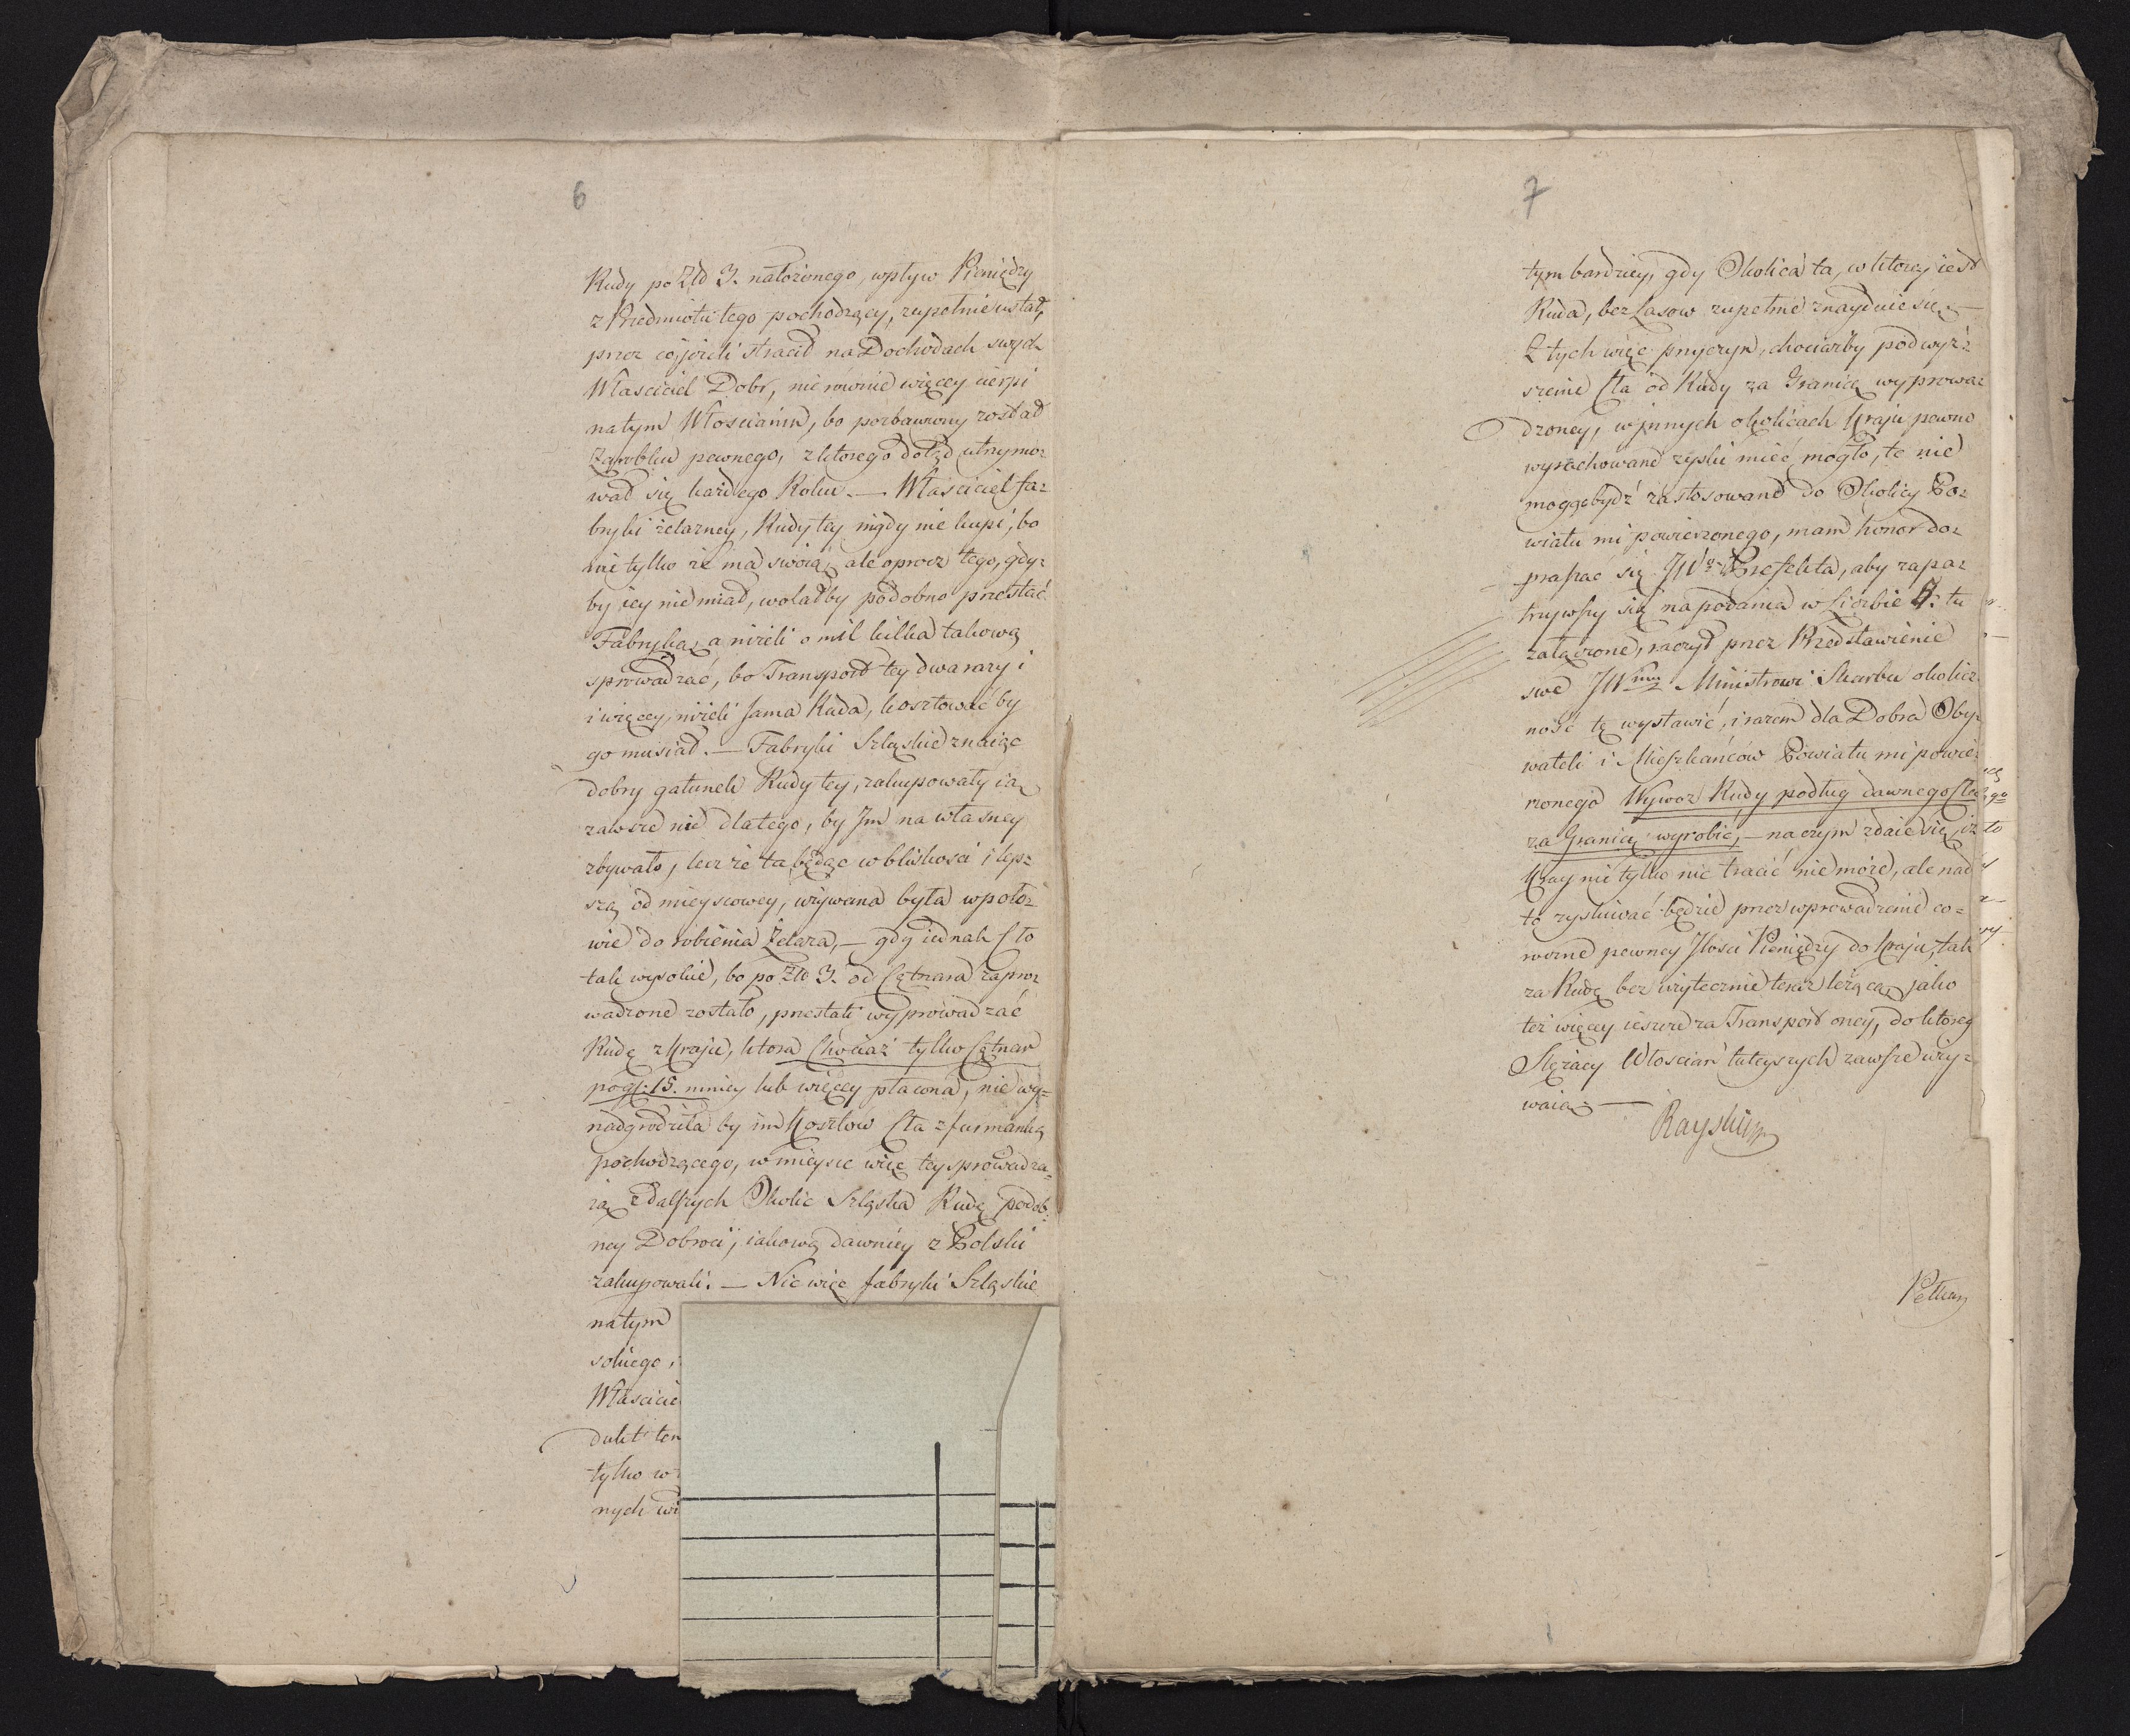 6
Rudy po Złd 3. nałożonego, wpływ Pieniędzy
z Przedmiotu tego pochodzący, zupełnie ustał,
przez co, jeżeli stracił na Dochodach swych
Własciciel Dobr, nierównie więcey cierpi
na tym Włoscianin, bo pozbawiony został
Zarobku pewnego, z ktorego dotąd utrzymo=
wał się każdego Roku. — Własciciel fa=
bryki żelazney, Rudy tey nigdy nie kupi, bo
nie tylko że ma swoią, ale oprocz tego, gdy=
by iey nie miał, wolałby podobno przestać
Fabryką, a niżeli o mil kilka takową
sprowadzać, bo Transport tey dwa razy i
i więcey, niżeli sama Ruda, kosztować by
go musiał. — Fabryki Szląskie znaiąc
dobry gatunek Rudy tey, zakupowały ią,
zawsze nie dlatego, by Im na własney
zbywało, lecz że ta będąc w bliskosci i lep=
szą od mieyscowey, używana była w poło=
wie do robienia Żelaza, — gdy iednak Cło
tak wysokie, bo po Złd 3. od Cętnara zapro=
wadzone zostało, przestali wyprowadzać
Rudę z Kraju, ktora Chociaż tylko Cętnar
po gl: 15. mniey lub więcey płacona, nie wy=
nadgrodziła by im Kosztow Cła z furmanką
pochodzącego, w mieysce więc tey sprowadza=
ią z dalszych Okolic Szląska Rudę podob=
ney Dobroci, iakową dawniey z Polski
zakupowali. — Nic więc fabryki Szląskie
na tym
sokiego,
Własciciel
dukt ten
tylko w
nych wi
7
tym bardziey, gdy Okolica ta, w ktorey iest
Ruda, bez Lasow zupełnie znayduie się. —
Z tych więc przyczyn, chociażby podwyż=
szenie Cła od Rudy za Granicę wyprowa=
dzoney, w innych okolicach Kraju pewno
wyrachowane zyski mieć mogło, te nie
mogą bydź zastosowane do Okolicy Po=
wiatu mi powierzonego, mam honor do=
praszac się JWo Prefekta, aby zapa=
trzywszy się na podania w Liczbie 4: tu
załączone, raczył przez Przedstawienie
swe JWmu Ministrowi Skarbu okolicz
ność tę wystawić, i razem dla Dobra Oby=
wateli i Mieszkańców Powiatu mi powie=
rzonego Wywoz Rudy podług dawnego Cła
za Granicę wyrobić, — na czym zdaie się, iż
Kray nie tylko nic tracić nie może, ale nad
to zyskiwać będzie przez wprowadzenie co=
roczne pewney Ilosci Pieniędzy do Kraju, tak
za Rudę bez użytecznie teraz leżącą, jako
też więcey ieszcze za Transport oney, do ktorego
Slęzacy Włoscian tuteyszych zawsze uży=
waią. —
Rayski